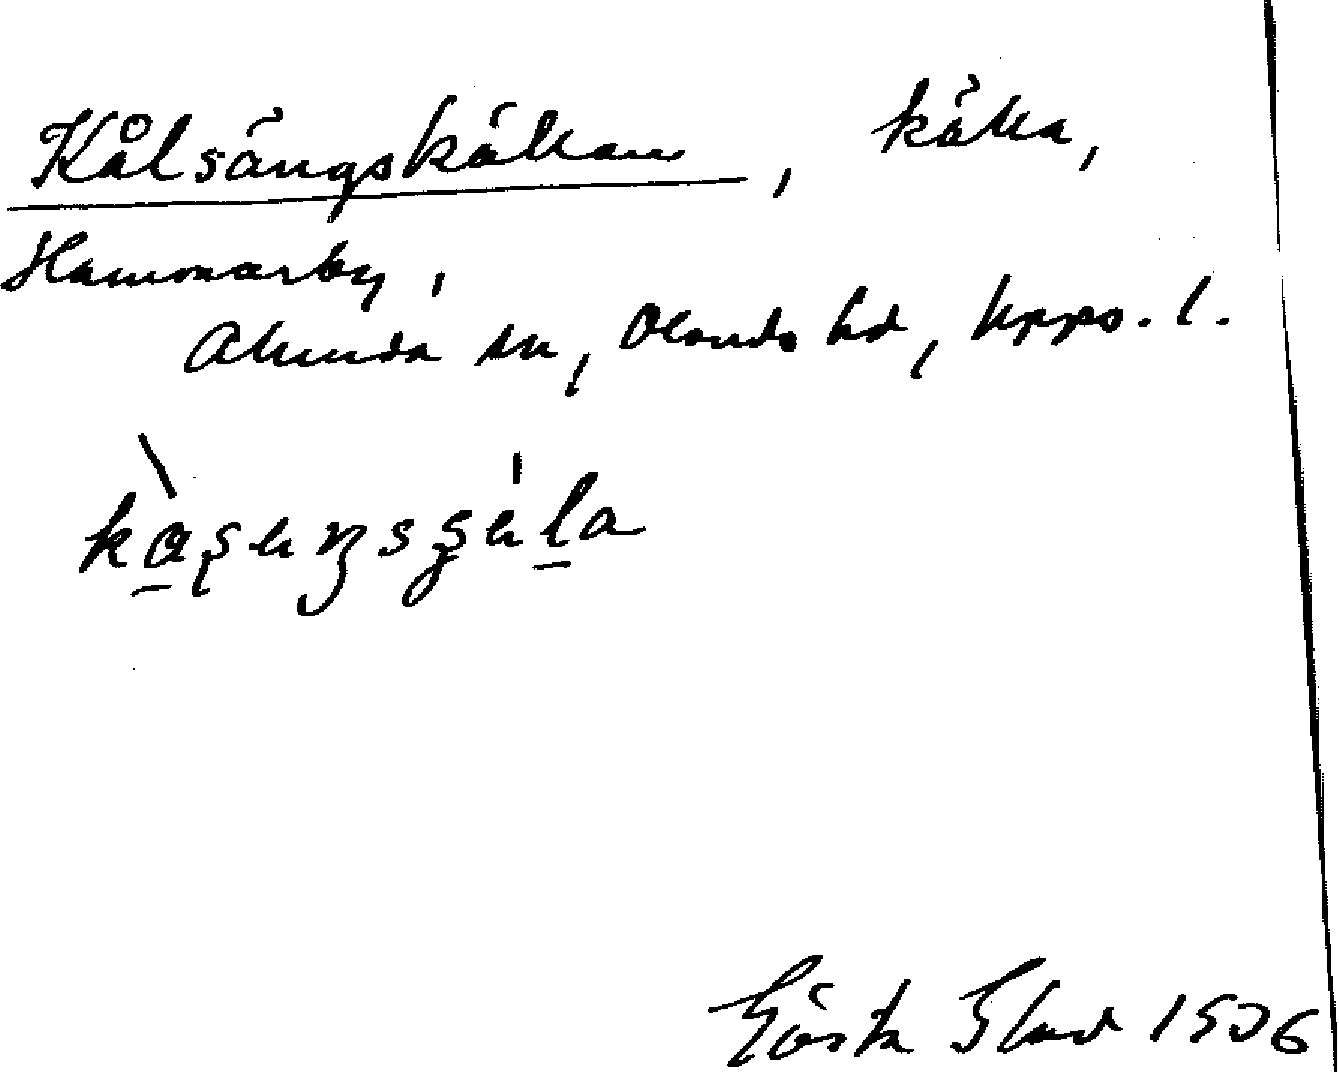 Kålsängskällan, källa,
Hammarby,
Alunda sn, Olands hd, Upps. l.
Gösta 1936